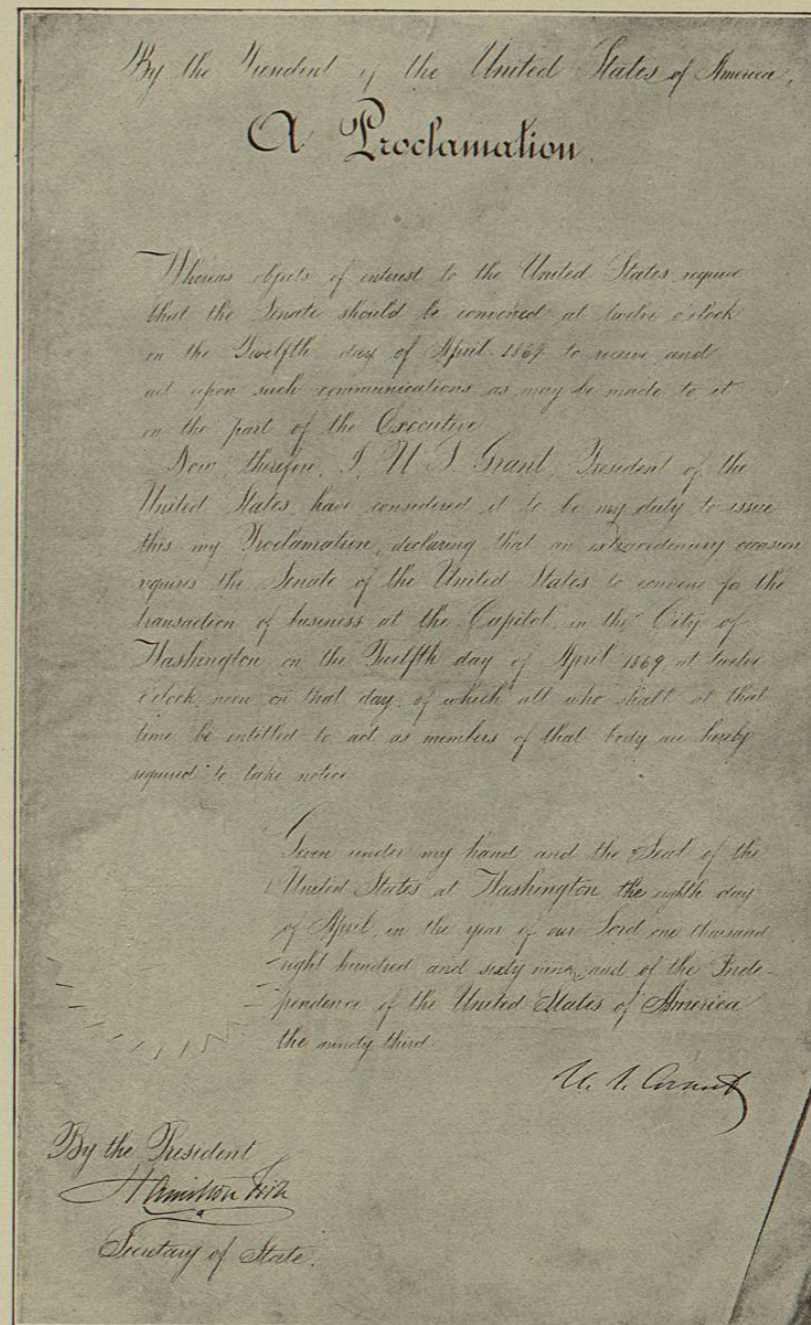 By the President of the United States of America,
A Proclamation.
Whereas objects of interest to the United States require
that the Senate should be convened at twelve o'clock
on the Twelfth day of April 1869 to receive and
act upon such communications as may be made to it
on the part of the Executive
Now, therefore, I, U. S. Grant, President of the
United States, have considered it to be my duty to issue
this my Proclamation, declaring that an extraordinary occasion
requires the Senate of the United States to convene for the
transaction of business at the Capitol, in the City of
Washington on the Twelfth day of April 1869, at twelve
o'clock, noon on that day, of which all who shall at that
time be entitled to act as members of that body are hereby
required to take notice
Given under my hand and the Seal of the
United States at Washington the eighth day
of April, in the year of our Lord one thousand
eight hundred and sixty nine, and of the Inde-
pendence of the United States of America
the ninety third.
U. S. Grant
By the President
Hamilton Fish
Secretary of State.